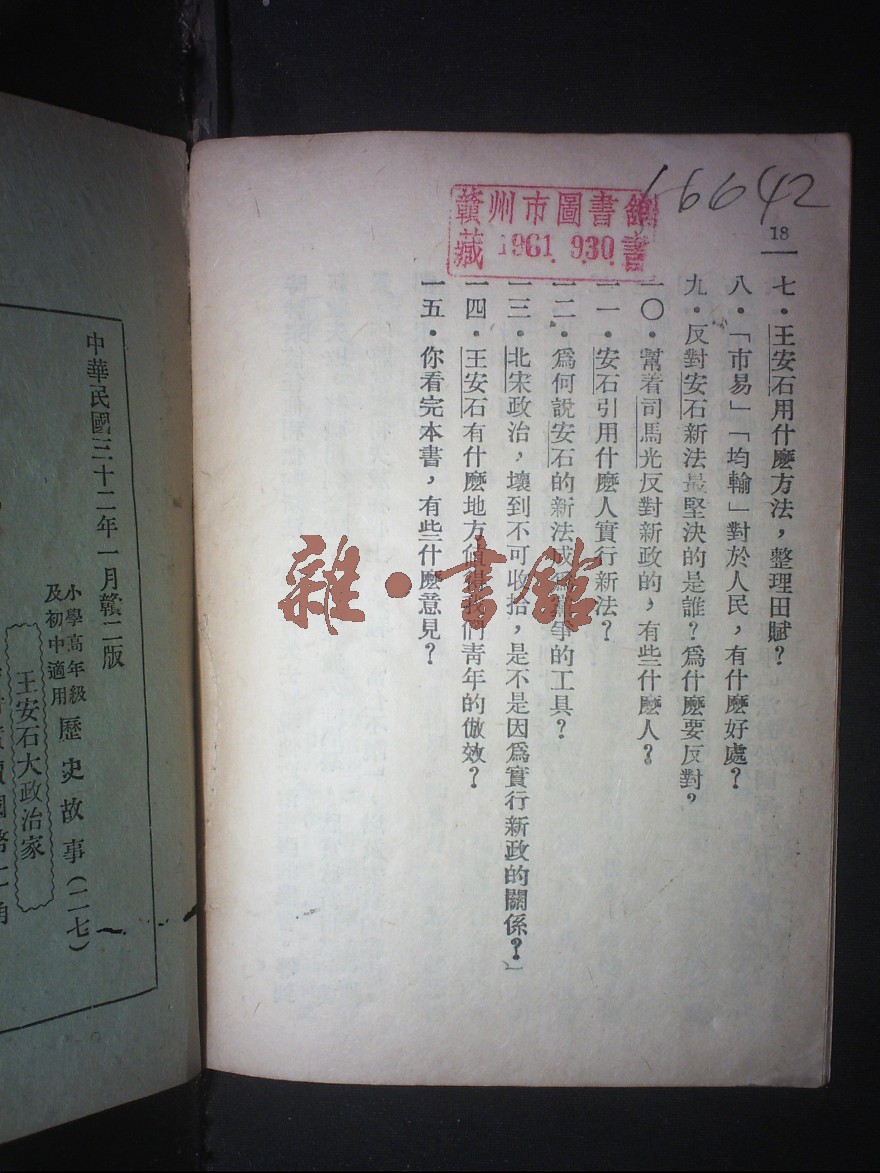 16642
18
贛州市圖書館
藏 1961. 9.30. 書
七．王安石用什麽方法，整理田賦？
八．「市易」「均輸」對於人民，有什麽好處？
九．反對安石新法最堅決的是誰？爲什麽要反對？
一〇．幫着司馬光反對新政的，有些什麽人？
一一．安石引用什麽人實行新法？
一二．爲何說安石的新法成爲黨爭的工具？
一三．北宋政治，壞到不可收拾，是不是因爲實行新政的關係？」
一四．王安石有什麽地方值得我們靑年的倣效？
一五．你看完本書，有些什麽意見？
雜·書館
中華民國三十二年一月贛二版
小學高年級
及初中適用
歷史故事（二七）
王安石大政治家